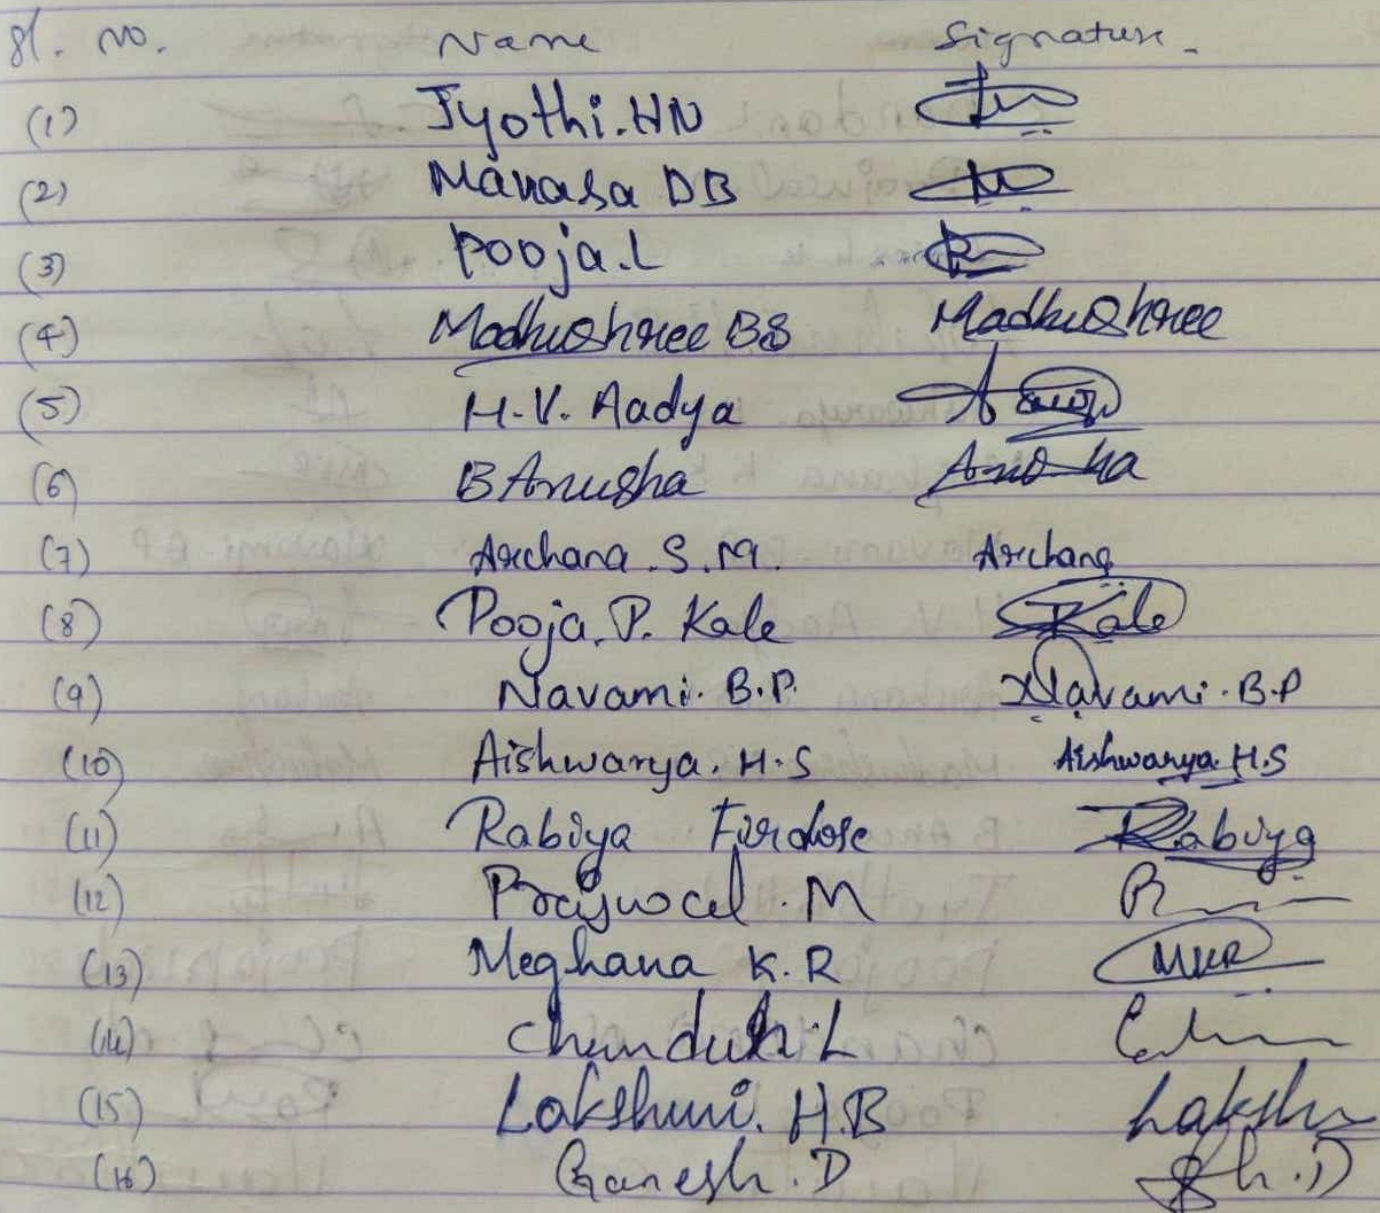 Sl. No. Name Signature
(1) Jyothi.HN
(2) Manasa DB
(3) Pooja.L
(4) Madhushree BS Madhushree
(5) H.V. Aadya
(6) B Anusha
(7) Archana.S.M. Archana
(8) Pooja.P. Kale Kale
(9) Navami.B.P. Navami.B.P
(10) Aishwarya.H.S Aishwarya.H.S
(11) Rabiya Firdose Rabiya
(12) Prajwal.M
(13) Meghana K.R MKR
(14) L
(15) Lakshmi.H.B Laksh
(16) Ganesh.D